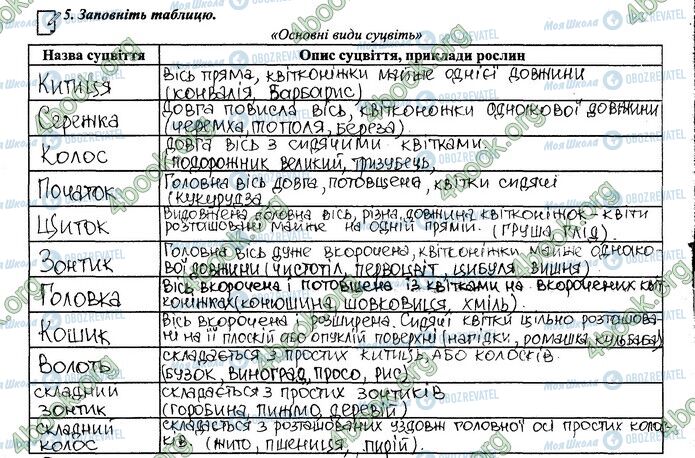 5. Заповніть таблицю.
«Основні види суцвіть»
Назва суцвіття Опис суцвіття, приклади рослин
Китиця
Вісь пряма, квітконіжки майже однієї довжини
(конвалія, барбарис)
Сережка
Довга повисла вісь, квітконіжки однокової довжини
(черемха, тополя, береза).
Колос
Довга вісь з сидячими квітками.
(подорожник великий, тризубець,
Початок
Головна вісь довга, потовщена, квітки сидячі
(кукурудза
Щиток
Видовжена головна вісь, різна довжина квітконіжок квіти
розташовані майже на одній прямій. (груша, глід).
Зонтик
Головна вісь дуже вкорочена, квітконіжки майже одноко-
вої довжини (чистотіл, первоцвіт, цибуля вишня)
Головка
Вісь вкорочена і потовщена із квітками на вкорочених квіт
коніжках (конюшина, шовковиця, хміль).
Кошик
Вісь вкорочена і розширена. Сидячі квітки щільно розташова-
ні на її плоскій або опуклій поверхні (нагідки, ромашка, кульбаба)
Волоть
складається з простих китиць, або колосків.
(бузок, виноград, просо, рис)
складний
зонтик
складається з простих зонтиків
(горобина, пижмо, деревій)
складний
колос
складається з розташованих уздовж головної осі простих коло-
ків (жито, пшениця, пирій).